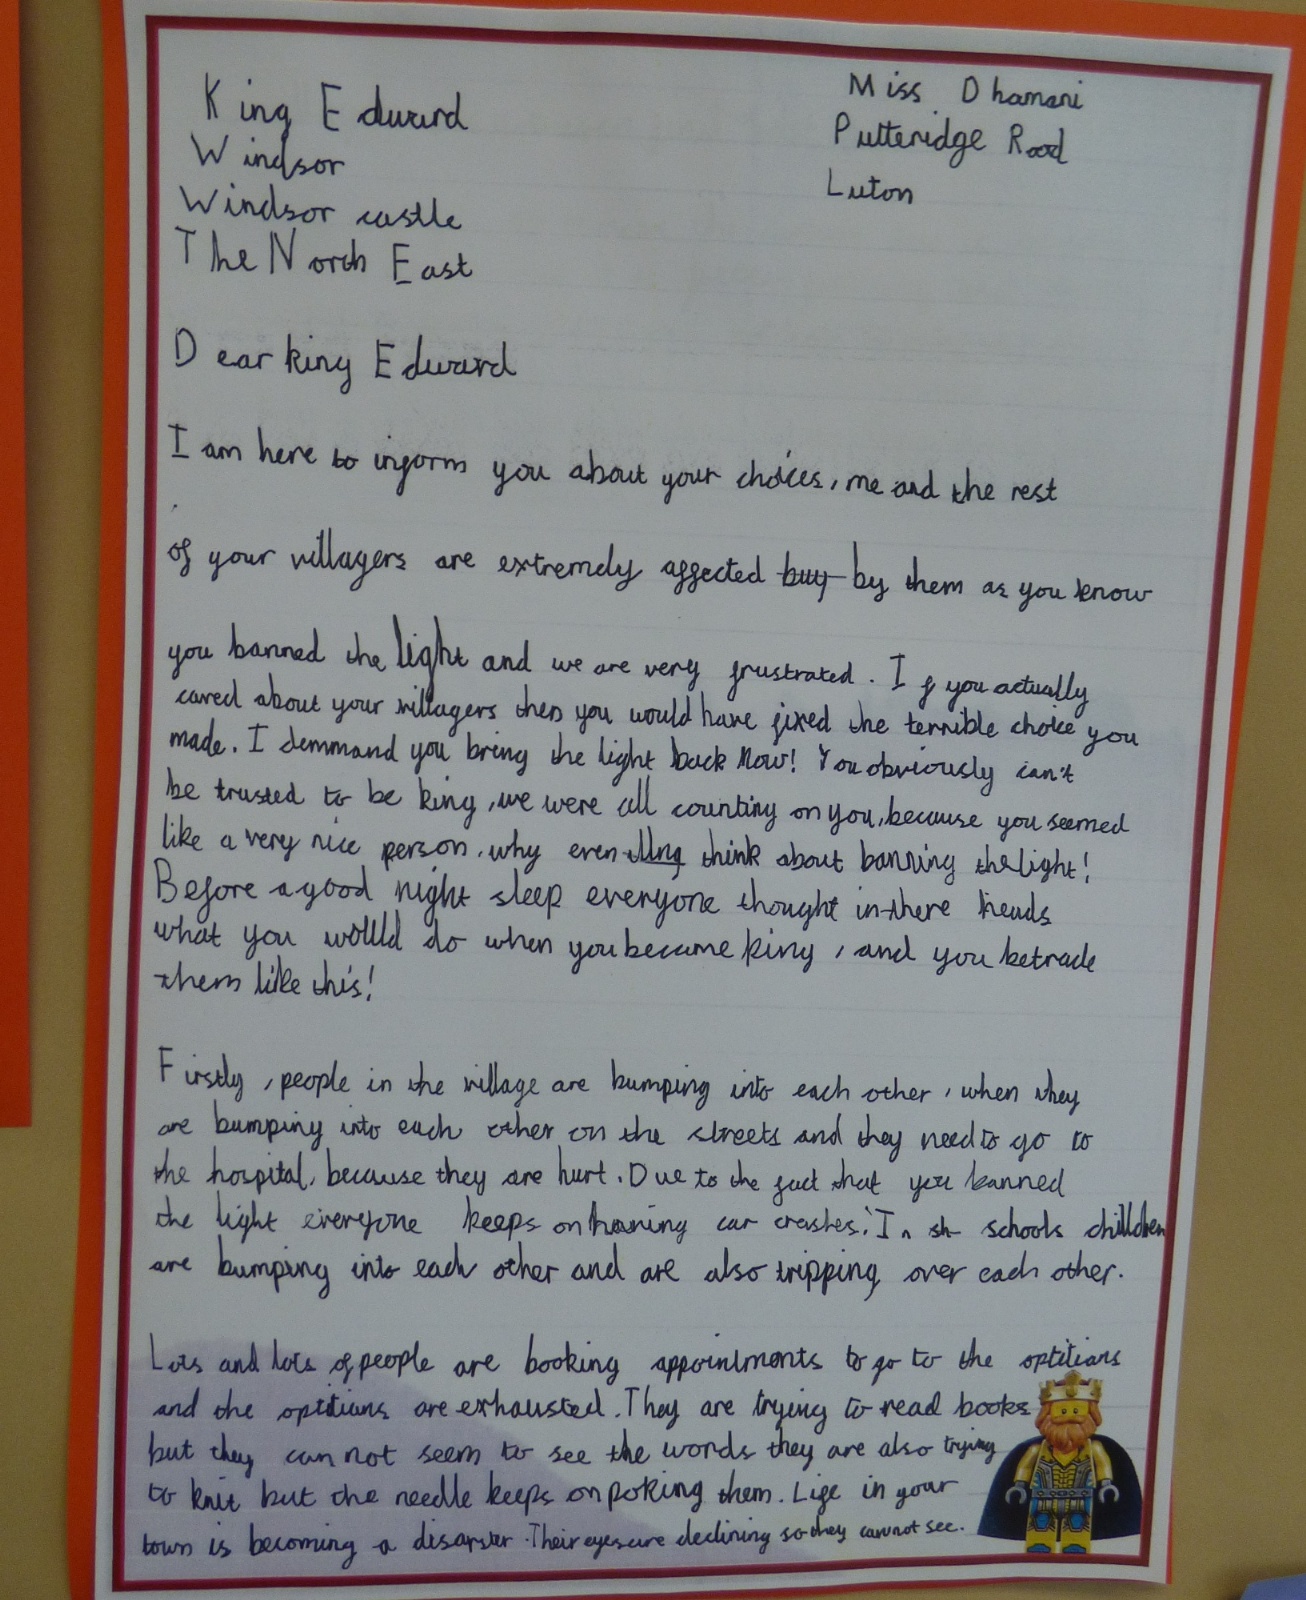 King Edward
Windsor
Windsor castle
The North East
Miss Dhamani
Putteridge Road
Luton
Dear king Edward
I am here to inform you about your choices, me and the rest
of your villagers are extremely affected buy by them as you know
you banned the light and we are very frustrated. If you actually
cared about your villagers then you would have fixed the terrible choice you
made. I demmand you bring the light back Now! You obviously can't
be trusted to be king, we were all counting on you, because you seemed
like a very nice person. why even think about banning the light!
Before a good night sleep everyone thought in there heads
what you would do when you became king, and you betrade
them like this!
Firstly, people in the village are bumping into each other, when they
are bumping into each other on the streets and they need to go to
the hospital, because they are hurt. Due to the fact that you banned
the light everyone keeps on having car crashes. In schools children
are bumping into each other and are also tripping over each other.
Lots and lots of people are booking appointments to go to the optitians
and the optitians are exhausted. They are trying to read books
but they can not seem to see the words they are also trying
to knit but the needle keeps on poking them. Life in your
town is becoming a disaster. Their eyes are declining so they cannot see.